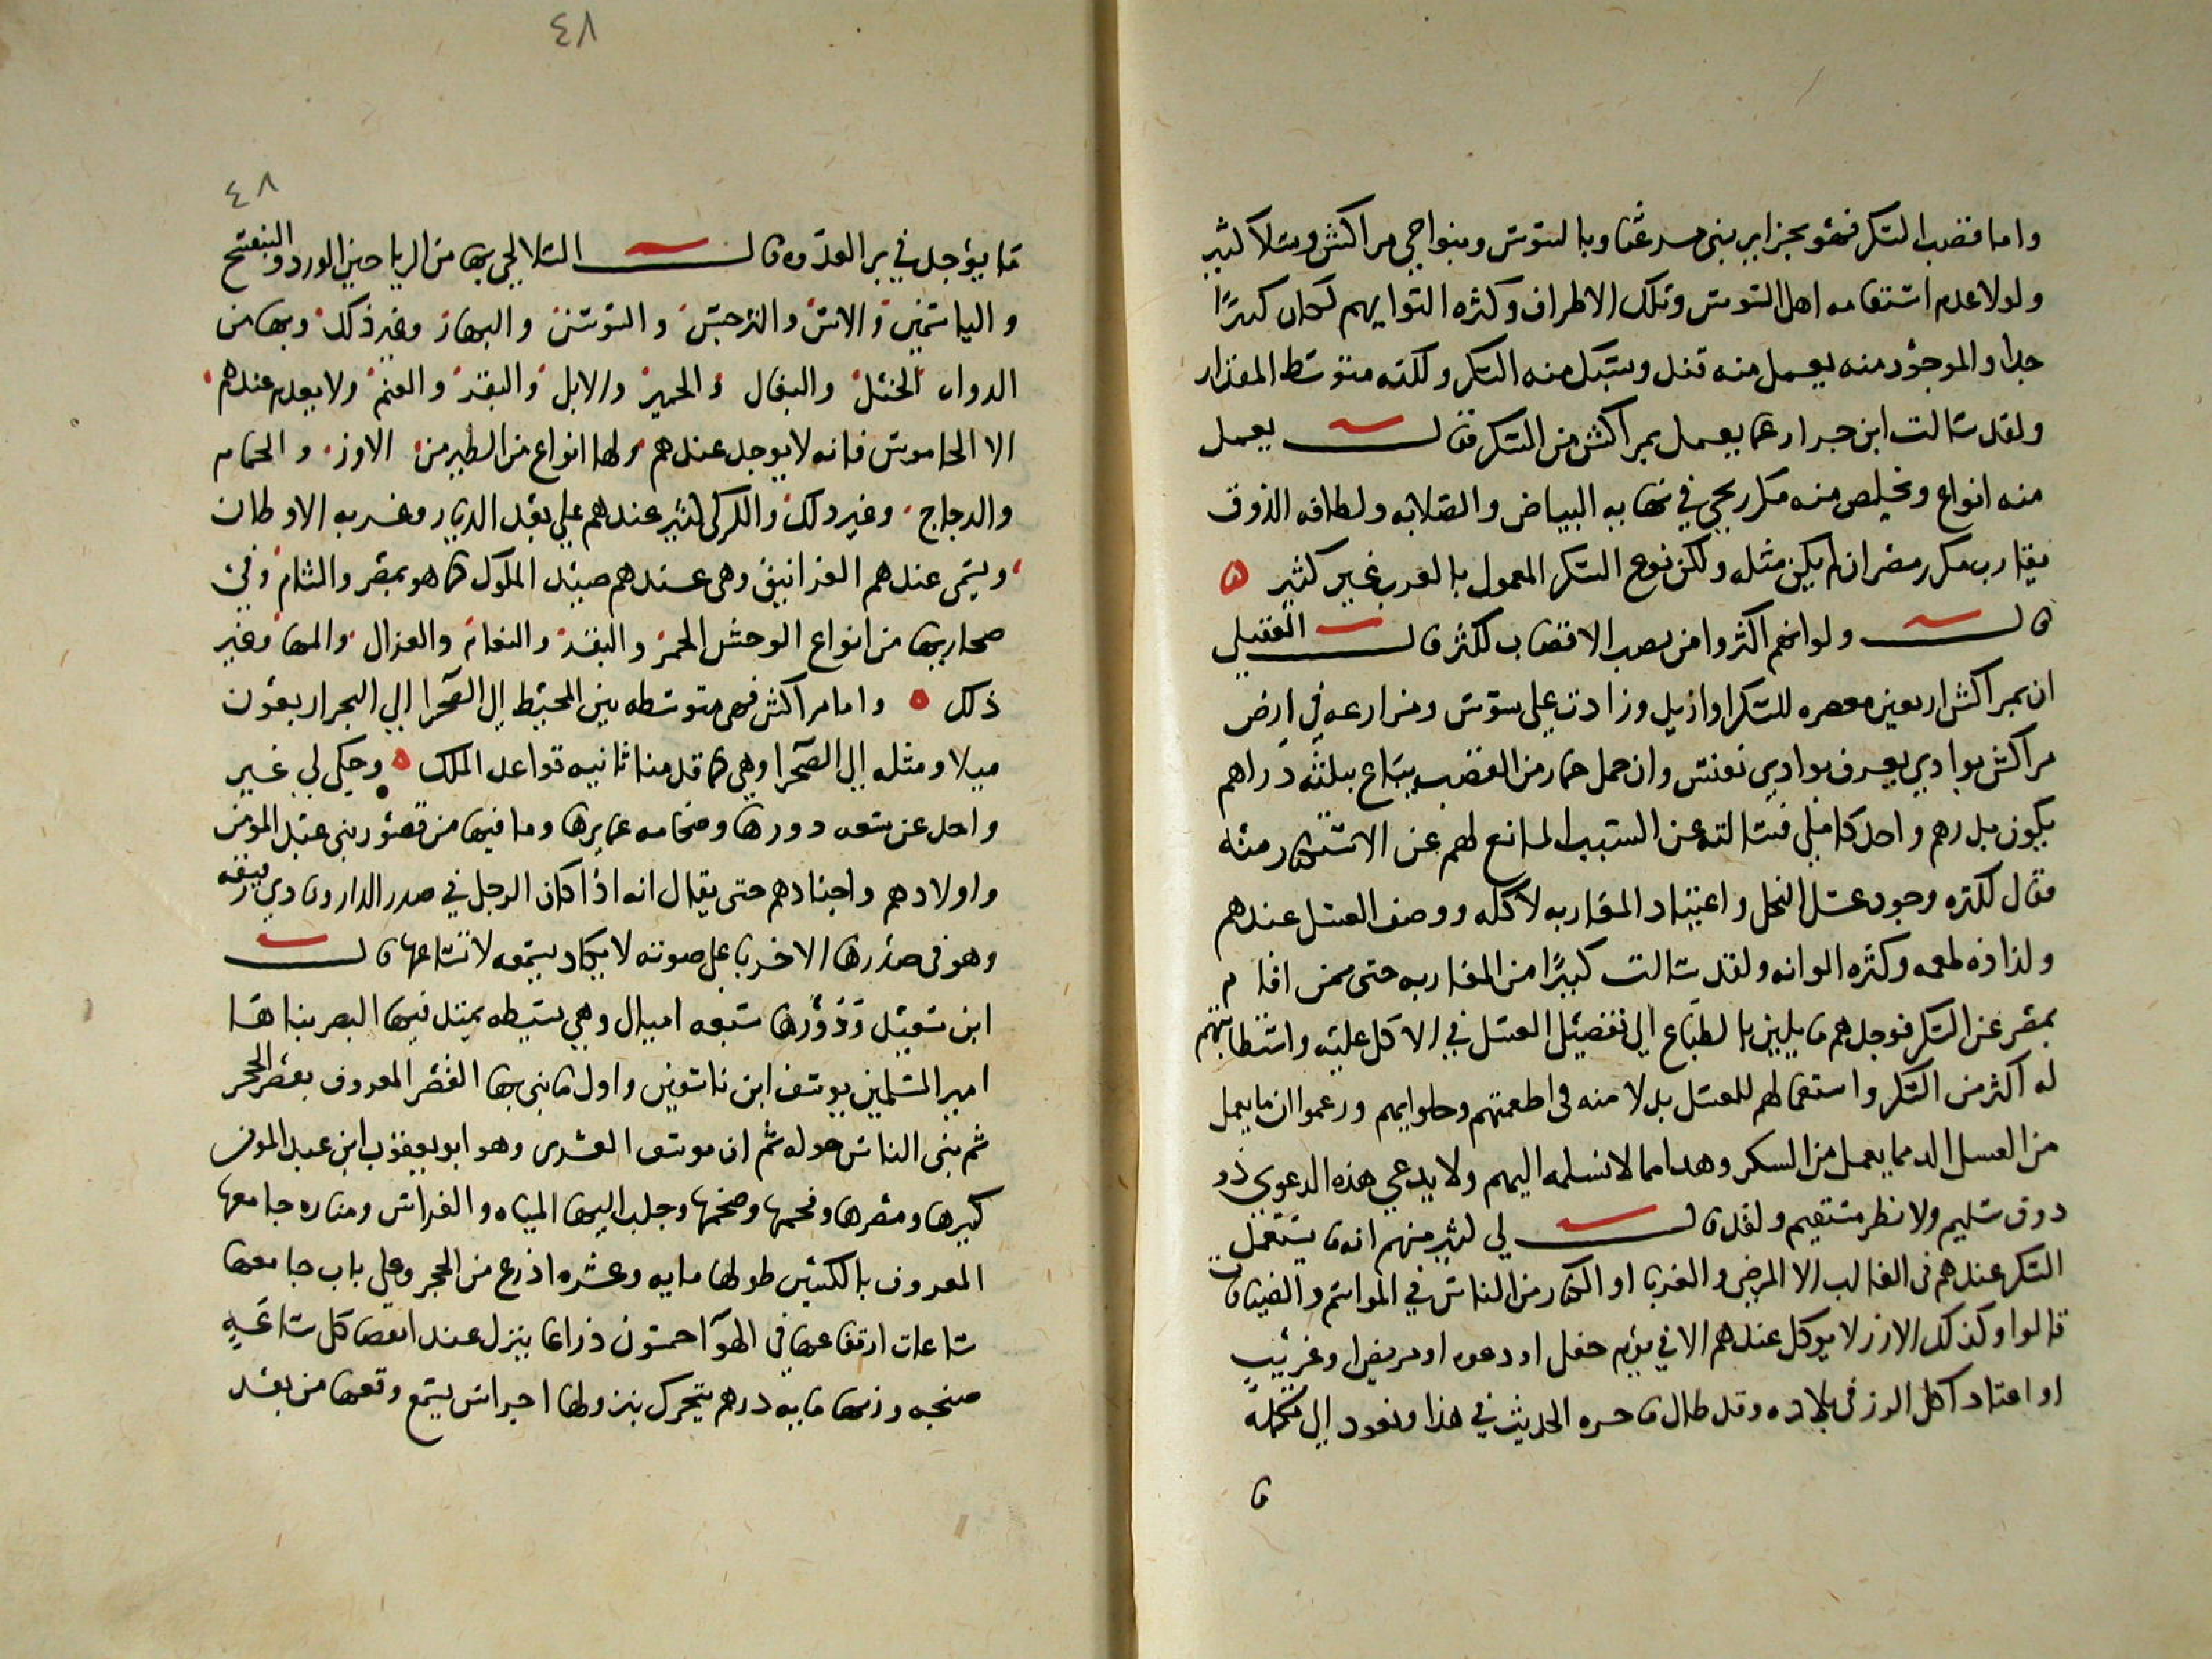 واما قصب السكر فهو بجزاير بنى مزغنا وبالسوس وبنواحي مراكش وسلا كثير
ولولا عدم استقامه اهل السوس وتلك الاطراف وكثره التوايهم لكان كثيرًا
جدا والموجود منه يعمل منه قند ويسبك منه السكر ولكنه متوسط المقدار
ولقد سالت ابن جرار عما يعمل بمراكش من السكر فقال يعمل
منه انواع ويخلص منه مكرر يجي في نهايه البياض والصلابه ولطافه الذوق
يقارب مكرر مصر ان لم يكن مثله ولكن نوع السكر المعمول بالغرب غير كثير ه
قال ولو انهم اكثروا من نصب الاقصاب لكثر قال العقيلي
ان بمراكش اربعين معصره للسكر او ازيد وزادت على سوس ومزارعه في ارض
مراكش بوادي يعرف بوادي نفيس وان حمل حمار من القصب يباع بثلثه دراهم
يكون بدرهم واحد كاملي فسالته عن السبب المانع لهم عن الاستكثار منه
فقال لكثره وجود عسل النحل واعتياد المغاربه لاكله ووصف العسل عندهم
ولذاذه طعمه وكثره الوانه ولقد سالت كبيرًا من المغاربه حتى ممن اقام
بمصر عن السكر فوجدهم مايلين بالطباع الى تفضيل العسل في الاكل عليه واستطابتهم
له اكثر من السكر واستعمالهم للعسل بدلا منه فى اطعمتهم وحلوايهم وزعموا ان ما يعمل
من العسل الد مما يعمل من السكر وهدا مما لا نسلمه اليهم ولا يدعي هذه الدعوي ذو
دوق سليم ولا نظر مستقيم ولقد قال لي كثير منهم انه ما يستعمل
السكر عندهم فى الغالب الا المرضي والغربا او الكبار من الناس في المواسم والضيافات
قالوا وكذلك الارز لا يوكل عندهم الا في يوم حفل او دعوه او مريض او غريب
او اعتاد اكل الرز فى بلاده وقد طال ما جره الحديث في هذا ونعود الي تكمله
ما
٤٨
٤٨
ما يوجد في بر العدوه قال السلالجي بها من الرياحين الورد والبنفسج
والياسمين والاس والنرجس والسوسن والبهار وغير ذلك وبها من
الدواب الخيل والبغال والحمير والابل والبقر والغنم ولا يعدم عندهم
الا الجاموس فانه لا يوجد عندهم ولها انواع من الطير من الاوز والحمام
والدجاج وغير ذلك والكركى كثير عندهم علي بعد الديار وغربه الاوطان
ويسمى عندهم الغرانيق وهى عندهم صيد الملوك كما هو بمصر والشام وفي
صحاريها من انواع الوحش الحمر والبقر والنعام والغزال والمها وغير
ذلك ه واما مراكش فهى متوسطه بين المحيط الي الصحرا الي البحر اربعون
ميلا ومثله الي الصحرا وهي كما قدمنا ثانيه قواعد الملك ه وحكى لي غير
واحد عن سعه دورها وضخامه عمايرها وما فيها من قصور بنى عبد المومن
واولادهم واجنادهم حتى يقال انه اذا كان الرجل في صدر الدار ونادى رفيقه
وهو فى صدرها الاخر باعلى صوته لا يكاد يسمعه لاتساعها قال
ابن سعيد ودورها سبعه اميال وهي بسيطه يمتد فيها البصر بناها
امير المسلمين يوسف ابن تاشفين واول ما بنى بها القصر المعروف بقصر الحجر
ثم بنى الناس حوله ثم ان يوسف العسرى وهو ابو يعقوب ابن عبد المومن
كبرها ومصرها وفخمها وضخمها وجلب اليها المياه والغراس ومناره جامعها
المعروف بالكتبين طولها مايه وعشره اذرع من الحجر وعلى باب جامعها
ساعات ارتفاعها فى الهوا خمسون ذراعا ينزل عند انقضا كل ساعه
صنجه وزنها مايه درهم يتحرك بنزولها اجراس يسمع وقعها من بعد